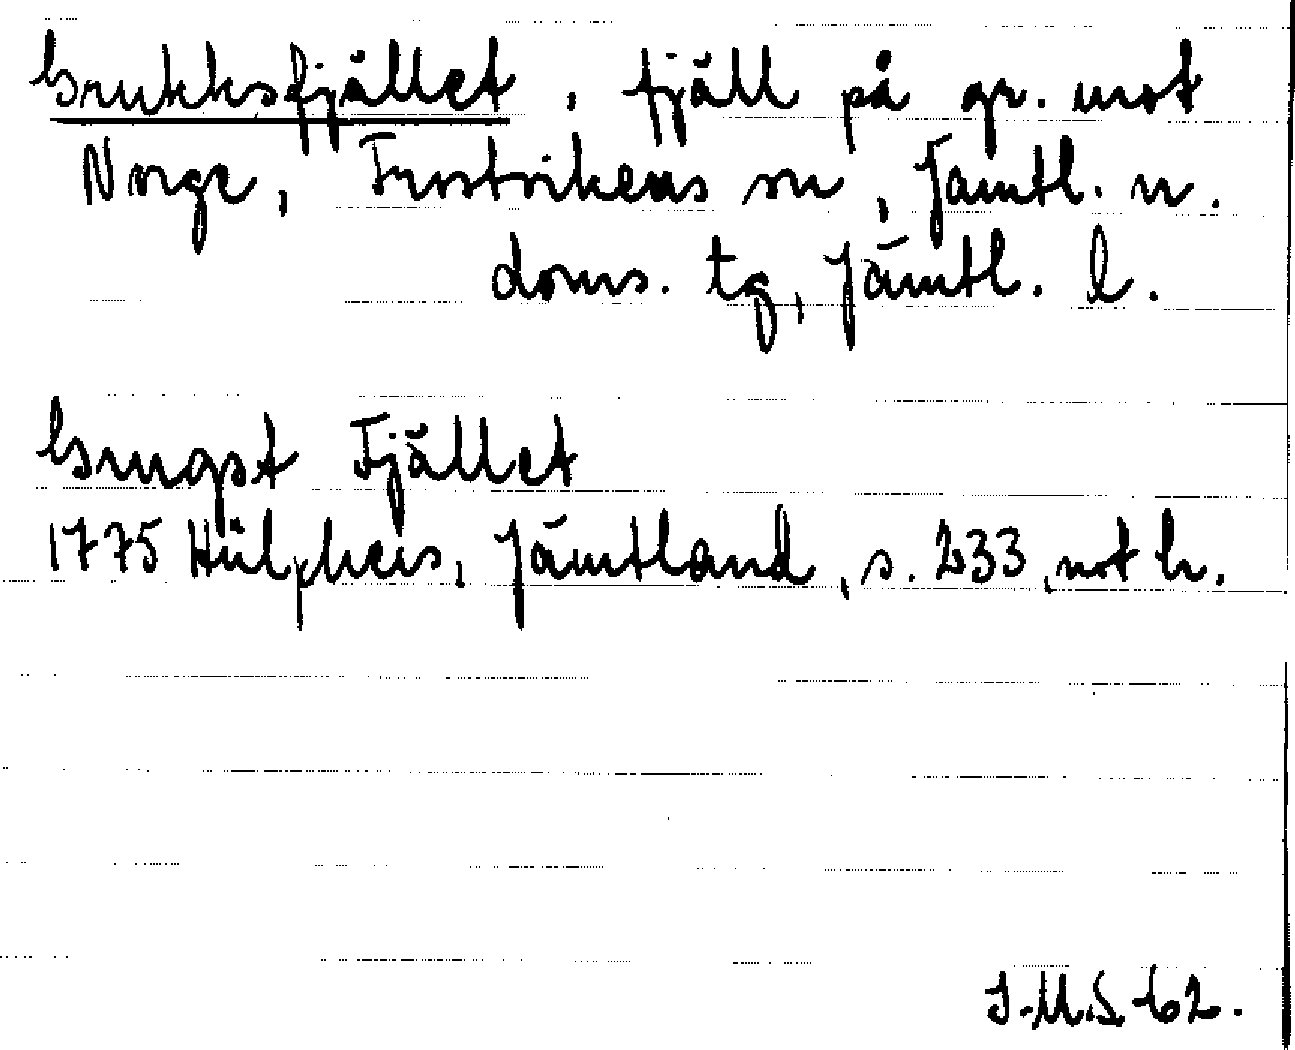 Grukksfjället, fjäll på gr. mot
Norge, Frostvikens sn, Jämtl. n.
doms. tg, Jämtl. l.
Grugst Fjället
1775 Hülphers, Jämtland, s. 233, not h.
J.M.S 62.